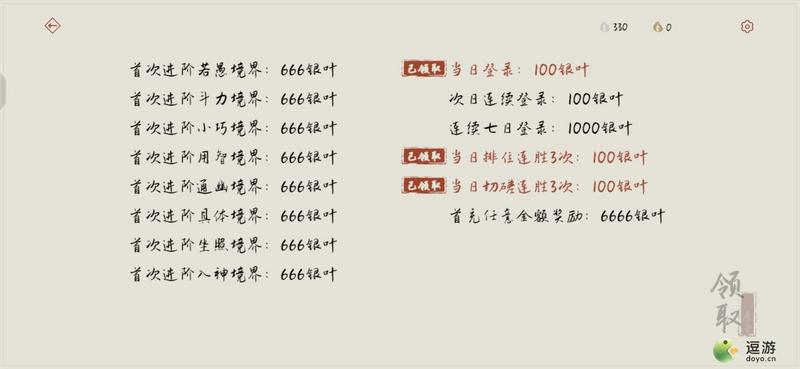 330
0
首次进阶若愚境界：666银叶
首次进阶斗力境界：666银叶
首次进阶小巧境界：666银叶
首次进阶用智境界：666银叶
首次进阶通幽境界：666银叶
首次进阶具体境界：666银叶
首次进阶坐照境界：666银叶
首次进阶入神境界：666银叶
已领取 当日登录：100银叶
次日连续登录：100银叶
连续七日登录：1000银叶
已领取 当日排位连胜3次：100银叶
已领取 当日切磋连胜3次：100银叶
首充任意金额奖励：6666银叶
领取
逗游
doyo.cn